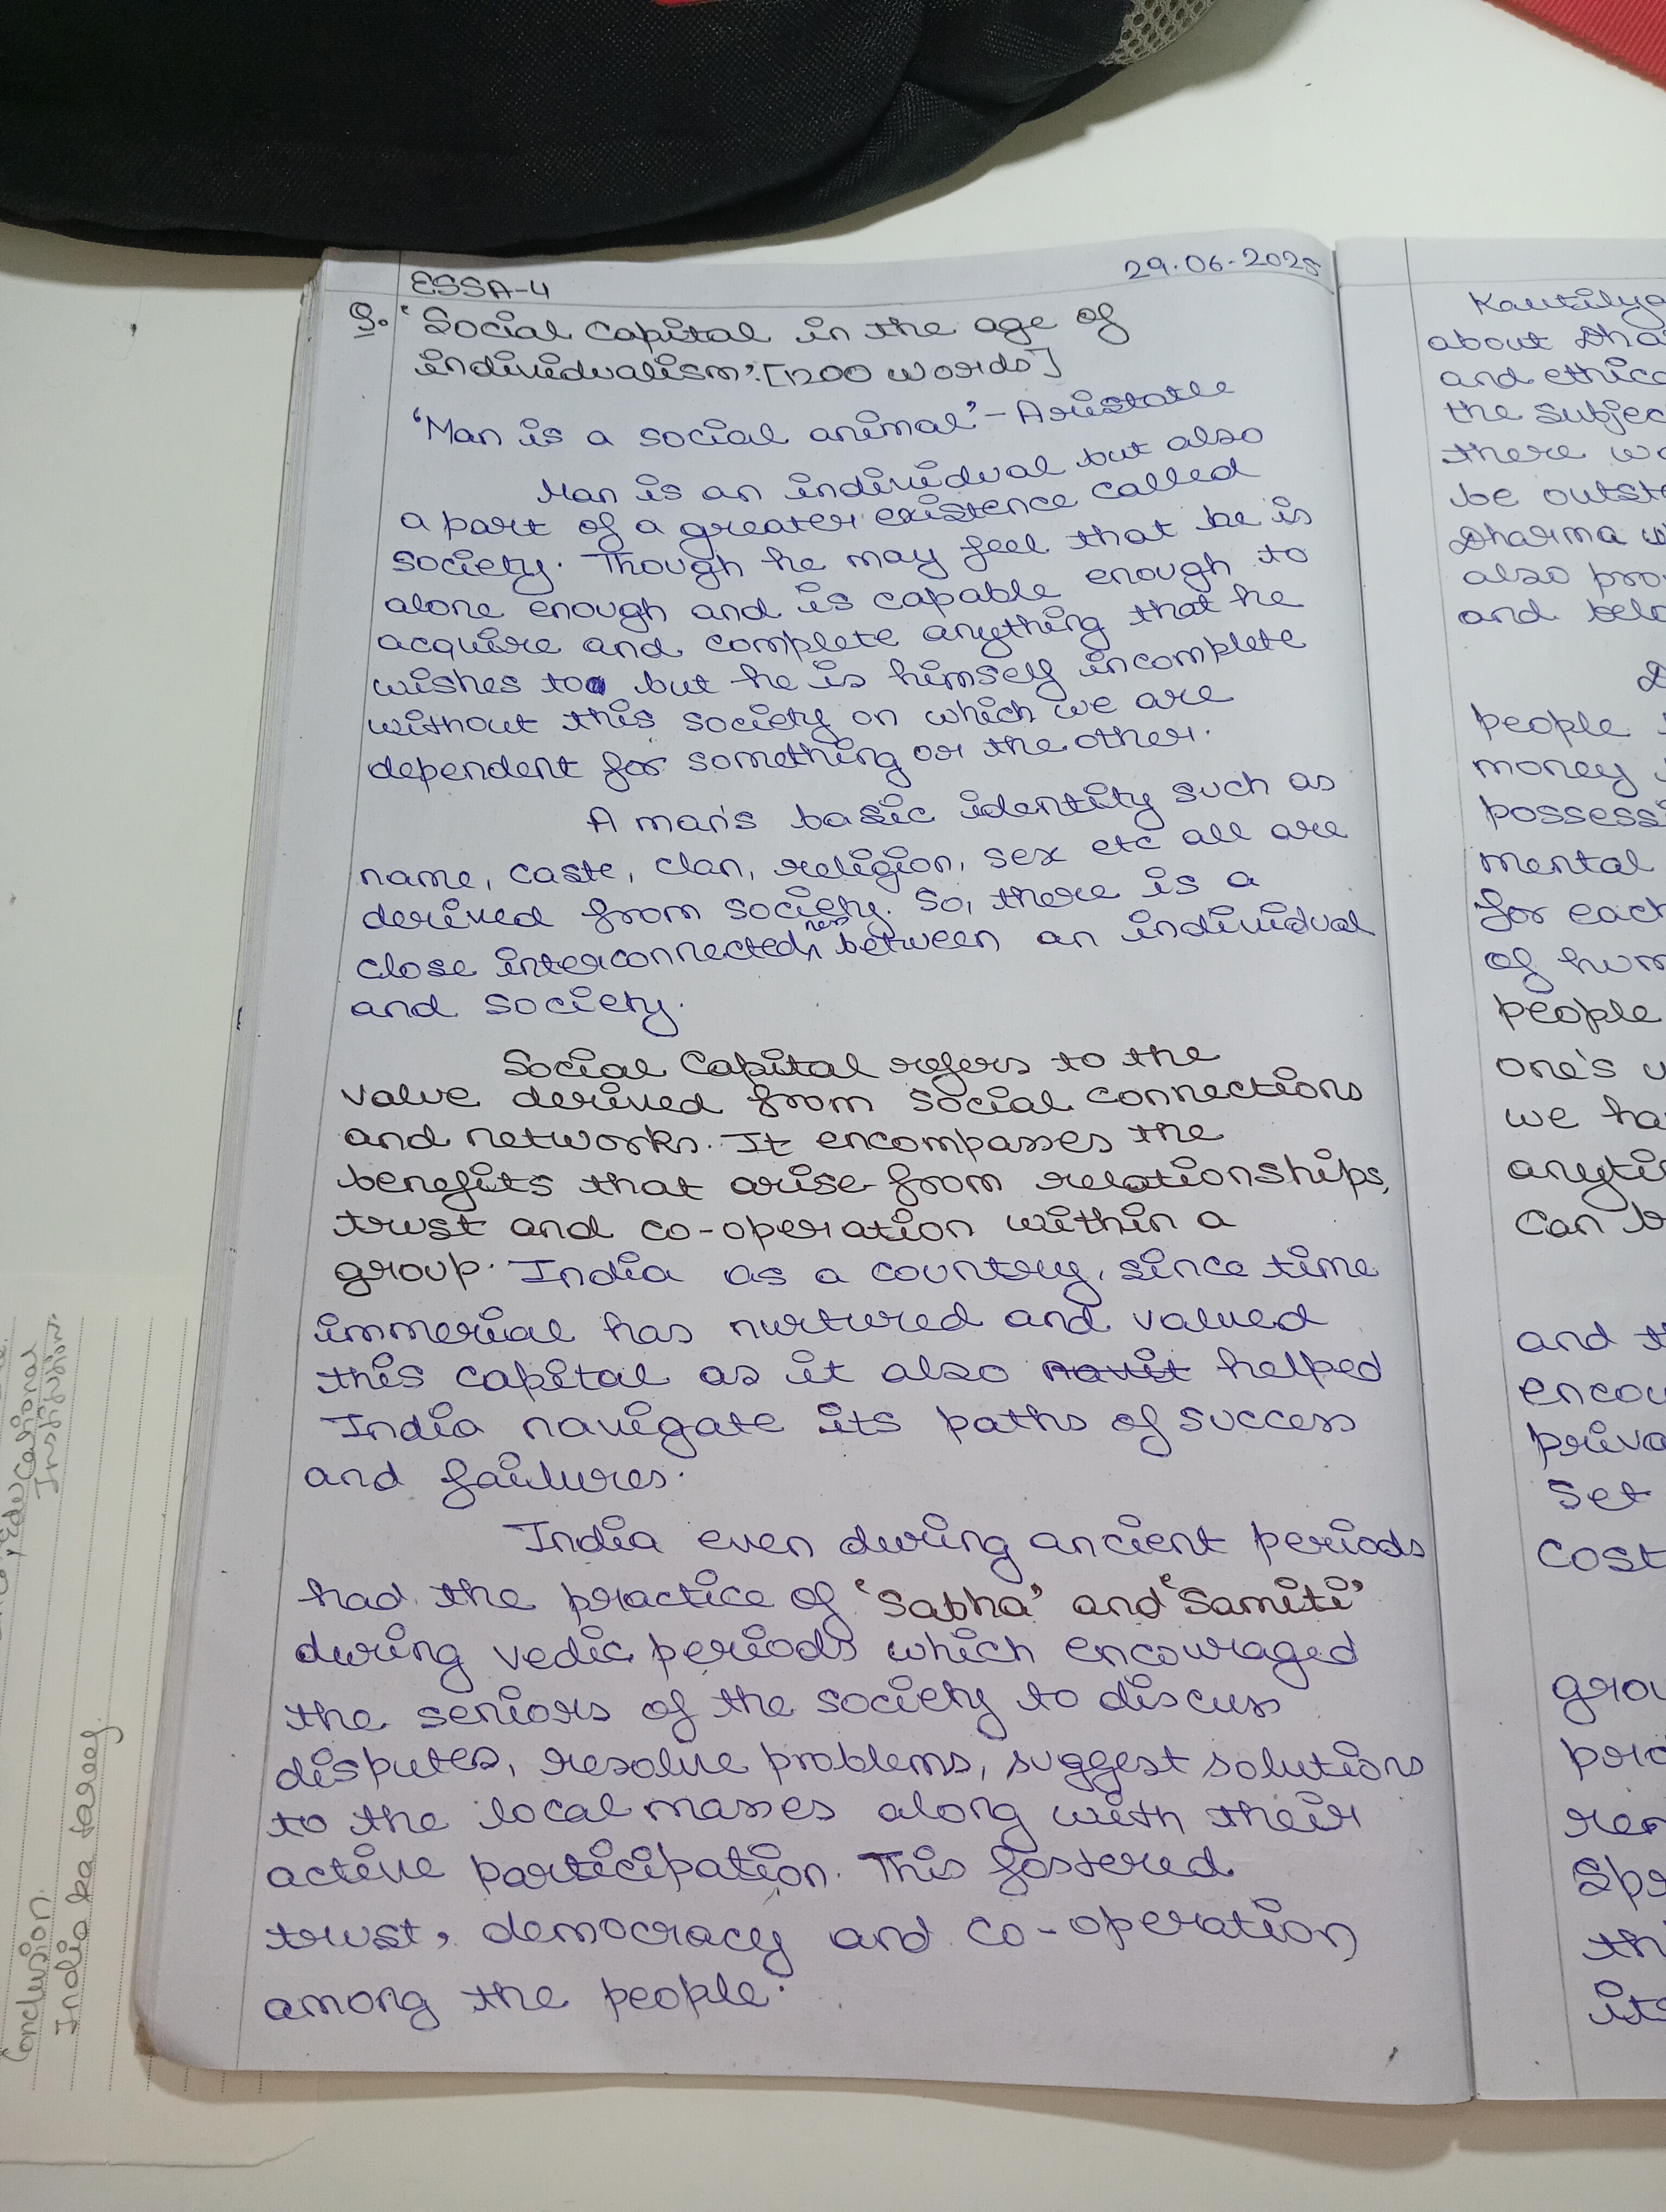 ESSA-4
29.06-2025
Q. 'Social Capital in the age of
individualism'. [1200 words]
'Man is a social animal' - Aristotle
Man is an individual but also
a part of a greater existence called
society. Though he may feel that he is
alone enough and is capable enough to
acquire and complete anything that he
wishes too but he is himself incomplete
without this society on which we are
dependent for something or the other.
A man's basic identity such as
name, caste, clan, religion, sex etc all are
derived from society. So, there is a
close interconnectedness between an individual
and society.
Social Capital refers to the
value derived from social connections
and networks. It encompasses the
benefits that arise from relationships,
trust and co-operation within a
group. India as a country, since time
immerial has nurtured and valued
this capital as it also helped
India navigate its paths of success
and failures.
India even during ancient periods
had the practice of 'Sabha' and 'Samiti'
during vedic periods which encouraged
the seniors of the society to discuss
disputes, resolve problems, suggest solutions
to the local masses along with their
active participation. This fostered
trust, democracy and co-operation
among the people.
Kautilya
about Dha
and ethic
the subjec
there wo
be outst
Dharma w
also pro
and belo
people
money
possessi
mental
for each
of hum
people
one's u
we ha
anyti
can b
and th
encou
priva
set
cost
grou
pro
ren
Spe
th
its
Educational
Institution
Conclusion
India ka tareef